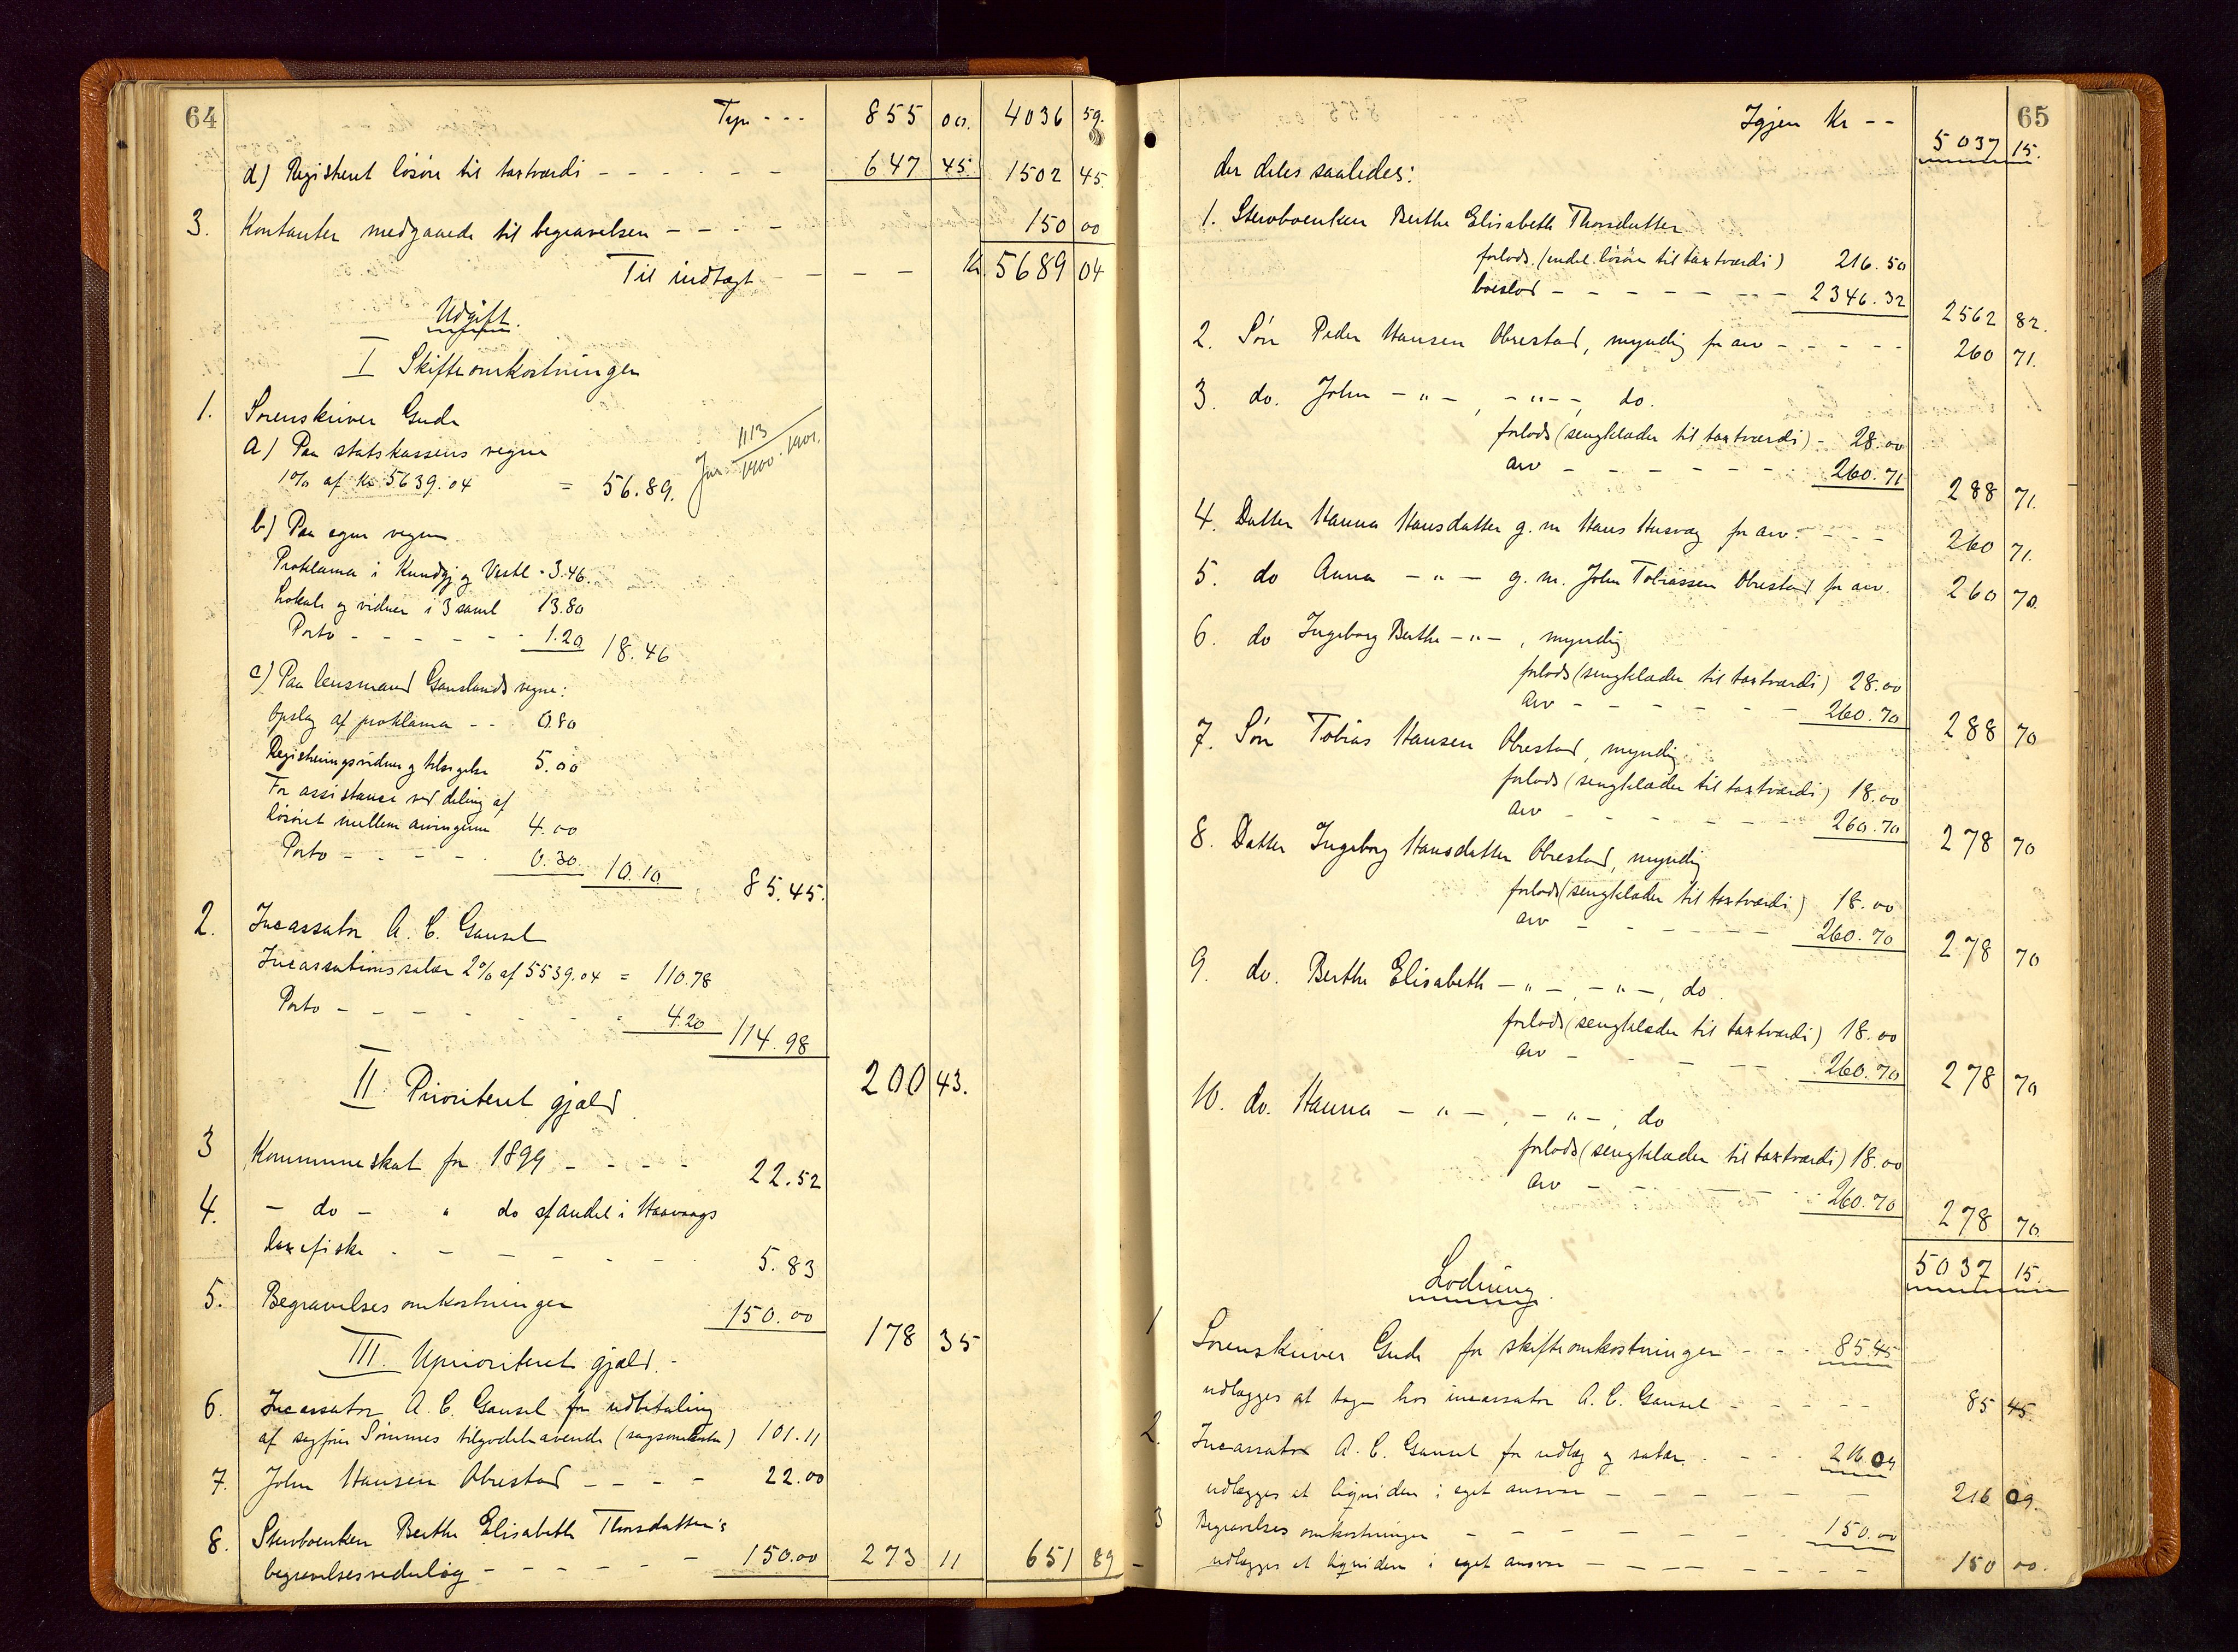 64
Tspr - - - 855 00. 4036 59.
d) Registreret løsøre til taxtværdi - - - - - - 647 45. 1502 45.
3. Kontanter medgaaede til begravelsen - - - - 150 00
Til indtægt - - - - Kr 5689 04
Udgift.
I Skifteomkostninger
1. Sorenskriver Gude
a) Paa statskassens vegne
1% af Kr 5639.04 = 56.89. Jur 1113/1900-1901.
b) Paa egne vegne
Proklama i Kundgj og Vestl - 3.46.
Lokale og vidner i 3 saml 13.80
Porto - - - - - - 1.20 18.46
c) Paa lensmand Gauslands vegne:
Opslag af proklama - - 0.80
Registreringsvidner og tilsigelse 5.00
For assistance ved deling af
løsøret mellem arvingerne 4.00
Porto - - - - 0.30. 10.10 85.45.
2. Incassator A. C. Gausel
Incassationssalær 2% af 5539.04 = 110.78
Porto - - - - - - 4.20 114.98
200 43.
II Prioriteret gjæld
3 Kommuneskat for 1899 - - - - 22.52
4. - do - " do af andel i Haavaags
laxefiske - - - - - - 5.83
5. Begravelsesomkostninger 150.00
178 35
III. Uprioriteret gjæld. -
6. Incassator A. C. Gausel for udbetaling
af sagfører Sømmes tilgodehavende (sagsomkostn) 101.11
7. John Hansen Obrestad - - - - 22.00
8. Stervboenken Berthe Elisabeth Thorsdatter's
begravelsesvederlag - - - - - 150.00 273 11 651 89
65
Igjen Kr - - 5037 15.
der deles saaledes:
1. Stervboenken Berthe Elisabeth Thorsdatter
forlods. (endel løsøre til taxtværdi) 216.50
boeslod - - - - - - - - 2346.32 2562 82.
2. Søn Peder Hansen Obrestad, myndig for arv - - - - - 260 71.
3. do. John - " - , - " - -, do.
forlods (sengklæder til taxtværdi) - 28.00
arv - - - - - - - 260.71 288 71.
4. Datter Hanna Hansdatter g. m Hans Husvæg for arv - - - 260 71.
5. do Anna - " - g. m. John Tobiassen Obrestad for arv. 260 70.
6. do Ingeborg Berthe - " - , myndig
forlods (sengklæder til taxtværdi) 28.00
arv - - - - - - 260.70 288 70
7. Søn Tobias Hansen Obrestad, myndig
forlods (sengklæder til taxtværdi) 18.00
arv - - - - - - 260.70 278 70
8. Datter Ingeborg Hansdatter Obrestad, myndig
forlods (sengklæder til taxtværdi) 18.00
arv - - - - - - 260.70 278 70
9. do. Berthe Elisabeth - " - , - " - , do.
forlods (sengklæder til taxtværdi) 18.00
arv - - - - - 260.70 278 70
10. do. Hanna - " - , - " - , do
forlods (sengklæder til taxtværdi) 18.00
arv - - - - - 260.70 278 70
5037 15.
Lodning.
1 Sorenskriver Gude for skifteomkostninger - - - 85.45
udlægges at tage hos incassator A. C. Gausel - - - - - 85 45.
2. Incassator A. C. Gausel for udlæg og salær. - - - 216.09
udlægges at liquidere i eget ansvar - - - - - - 216 09.
3 Begravelses omkostninger - - - - - - - 150.00
udlægges at liquidere i eget ansvar - - - - - - - 150 00.